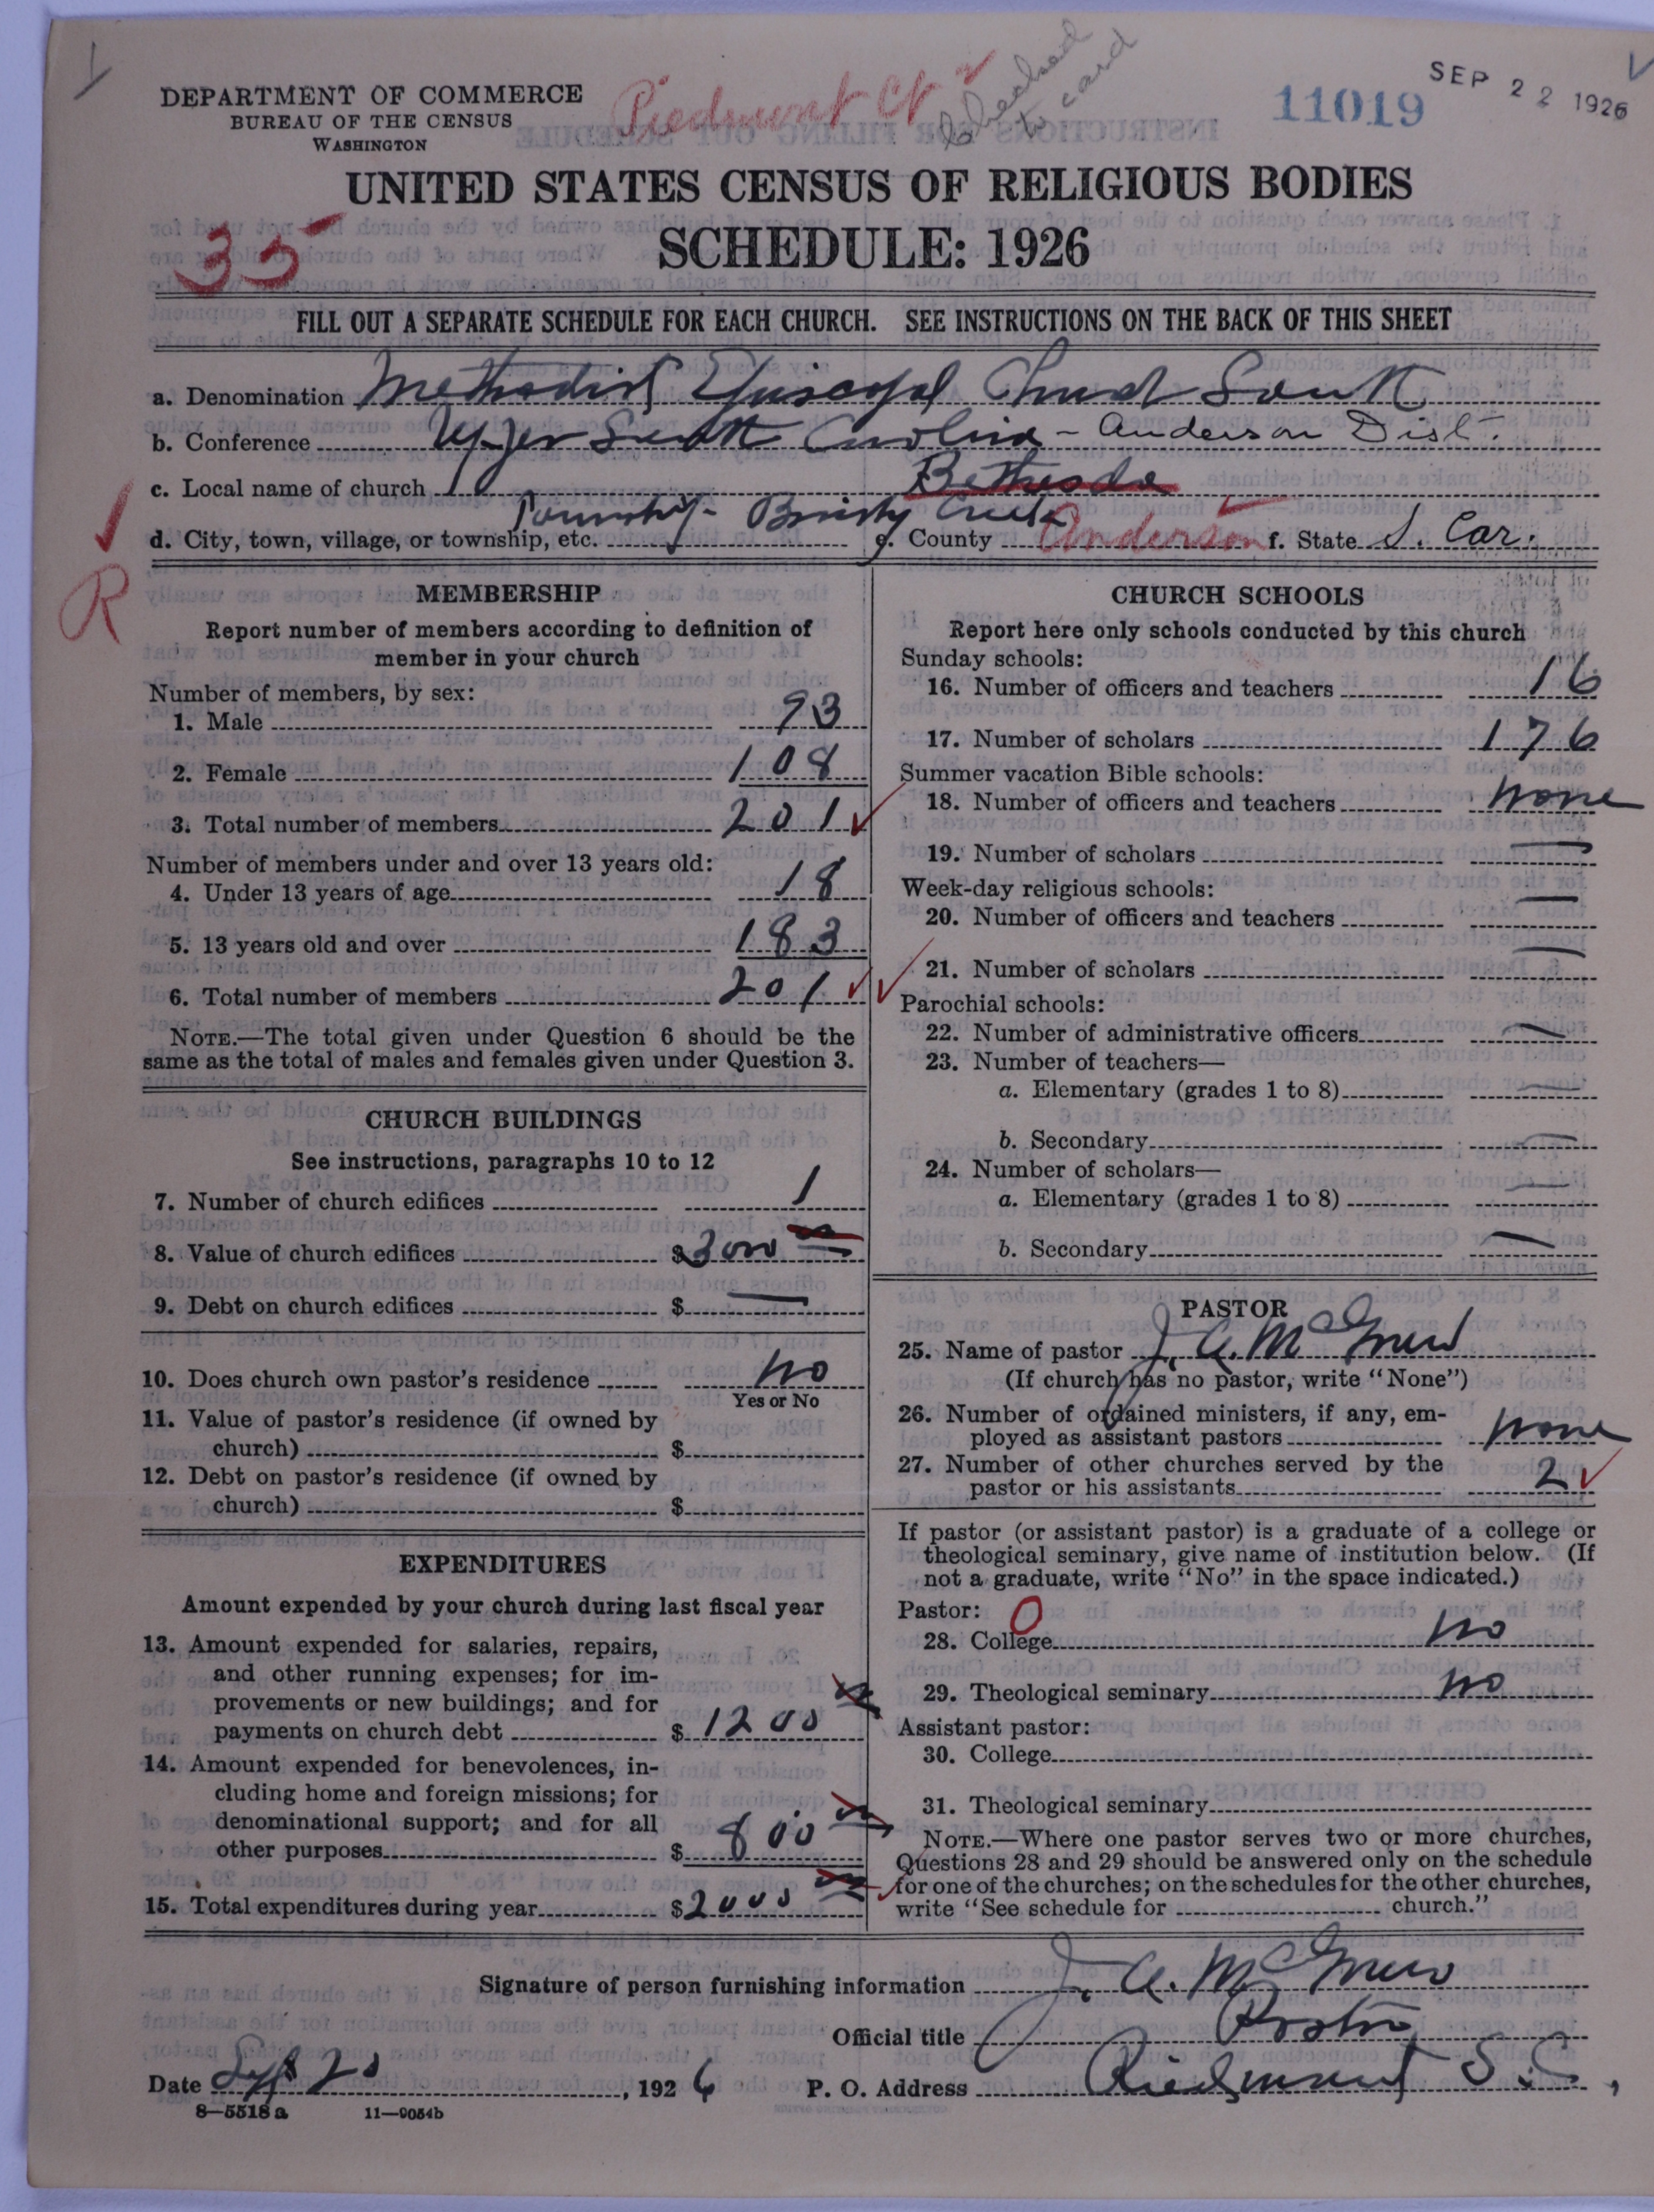 DEPARTMENT OF COMMERCE
BUREAU OF THE CENSUS
WASHINGTON
Piedmont Ct
Checked to card
11019
SEP 22 1926
UNITED STATES CENSUS OF RELIGIOUS BODIES
SCHEDULE: 1926
35
FILL OUT A SEPARATE SCHEDULE FOR EACH CHURCH. SEE INSTRUCTIONS ON THE BACK OF THIS SHEET
a. Denomination Methodist Episcopal Church South
b. Conference Upper South Carolina - Anderson Dist.
c. Local name of church Bethesda
Township - Brushy Creek
d. City, town, village, or township, etc. e. County Anderson f. State S. Car.
R
MEMBERSHIP
Report number of members according to definition of
member in your church
Number of members, by sex:
1. Male 93
2. Female 108
3. Total number of members 201
Number of members under and over 13 years old:
4. Under 13 years of age 18
5. 13 years old and over 183
6. Total number of members 201
NOTE.—The total given under Question 6 should be the
same as the total of males and females given under Question 3.
CHURCH BUILDINGS
See instructions, paragraphs 10 to 12
7. Number of church edifices 1
8. Value of church edifices $3000
9. Debt on church edifices $ —
10. Does church own pastor's residence no
Yes or No
11. Value of pastor's residence (if owned by
church) $
12. Debt on pastor's residence (if owned by
church) $
EXPENDITURES
Amount expended by your church during last fiscal year
13. Amount expended for salaries, repairs,
and other running expenses; for im-
provements or new buildings; and for
payments on church debt $ 1200
14. Amount expended for benevolences, in-
cluding home and foreign missions; for
denominational support; and for all
other purposes $ 800
15. Total expenditures during year $2000
CHURCH SCHOOLS
Report here only schools conducted by this church
Sunday schools:
16. Number of officers and teachers 16
17. Number of scholars 176
Summer vacation Bible schools:
18. Number of officers and teachers none
19. Number of scholars —
Week-day religious schools:
20. Number of officers and teachers —
21. Number of scholars —
Parochial schools:
22. Number of administrative officers —
23. Number of teachers—
a. Elementary (grades 1 to 8) —
b. Secondary —
24. Number of scholars—
a. Elementary (grades 1 to 8) —
b. Secondary —
PASTOR
25. Name of pastor J. A. McGrew
(If church has no pastor, write "None")
26. Number of ordained ministers, if any, em-
ployed as assistant pastors none
27. Number of other churches served by the
pastor or his assistants 2
If pastor (or assistant pastor) is a graduate of a college or
theological seminary, give name of institution below. (If
not a graduate, write "No" in the space indicated.)
Pastor: O
28. College no
29. Theological seminary no
Assistant pastor:
30. College
31. Theological seminary
NOTE.—Where one pastor serves two or more churches,
Questions 28 and 29 should be answered only on the schedule
for one of the churches; on the schedules for the other churches,
write "See schedule for church."
Signature of person furnishing information J. A. McGrew
Official title Pastor
Date Sept 20, 1926 P. O. Address Piedmont S.C.,
8—5518 a 11—9054b